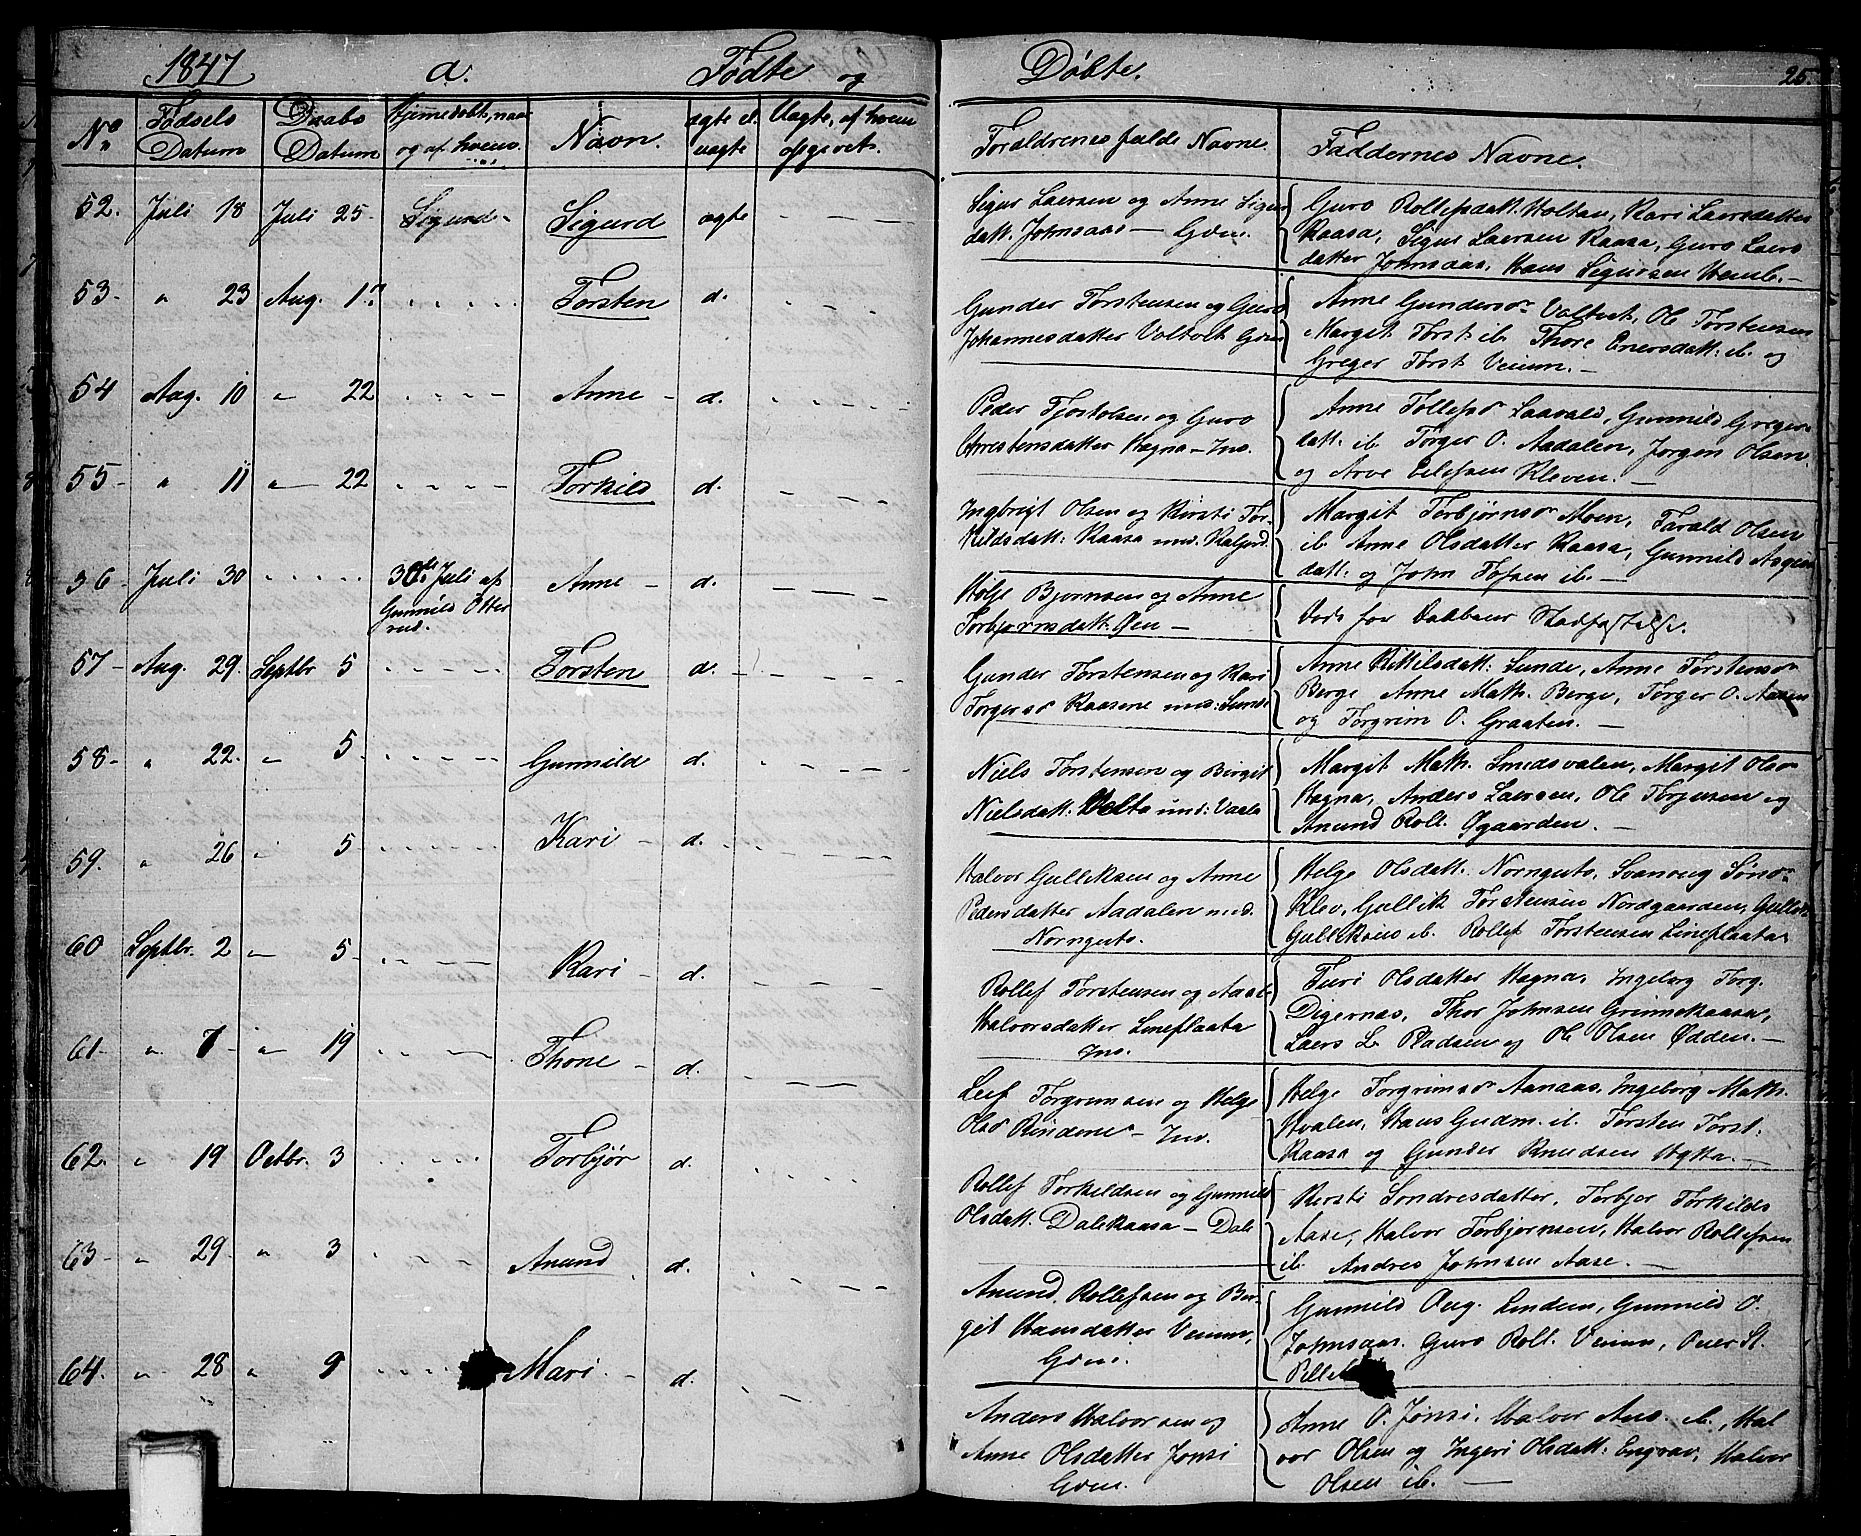 1847 a. Fødte og Døbte. 25.
No. Fødsels Datum Daabs Datum Hjemmedøbt, naar og af hvem Navn. ægte el. uægte Uægte, af hvem opgivet. Forældrenes fulde Navne. Faddernes Navne.
52. Juli 18 Juli 25 Sigurd Sigurd ægte
Sigur Laersen og Anne Sigur
datt. Johnsaas — Grn.
Guro Rollefsdatt. Holtan, Kari Laersdatter
Raasa, Sigur Laersen Raasa, Guro Laers
datter Johnsaas, Hans Sigursen Hemb. —
53 " 23 Aug. 1 Torsten d.
Gunder Torstensen og Guro
Johannesdatter Valtvet
Anne Gunders Valtvet, Ole Torstensen
Margit Torst. ib. Thore Enersdatt. ib. og
Greger Torst Veium. —
54 Aug. 10 " 22 Anne d.
Peder Tjostolsen og Guro
Hagna —
Anne Tollefs Laavald, Gunnild Greger
datt. ib. Torger O. Aadalen, Jørgen Olsen
og Arve Eilefsen Kleven. —
55 " 11 " 22 Torkild d.
Ingbrigt Olsen og Kirsti Tor-
kildsdatt: Raasa
Margit Torbjørns Moen, Tarald Olsen
ib. Anne Olsdatter Raasa, Gunnild
datt: og John ib. —
56 Juli 30 30te Juli af Anne d.
Gunnild Otter
Helje Bjørnsen og Anne
Torbjørnsdatt. Øen —
Døde før Daabens Stadfæstelse.
57 Aug. 29. Septbr 5 Torsten d.
Gunder Torstensen og Kari
Torgers Raasene
Anne Kittilsdatt: Sunde, Anne Torstens
Berge Anne Math. Berge, Torger O. Aasen
og Torgrim O. Graaten. —
58 " 22. " 5 Gunnild d.
Niels Torstensen og Birgit
Nielsdatt: Holta
Margit Math. Smedsvalen, Margit Ols
Hagna, Anders Laersen, Ole Torjusen og
Anund Roll. Øgaarden. —
59. " 26 " 5 Kari d.
Halvor Gulleksen og Anne
Pedersdatter Aadalen
Nornguto.
Helge Olsdatt. Nornguto, Svanoug
Klev, Gullik Torstensen Nordgaarden,
ib. Rollef Torstensen Lineflaata
60 Septbr. 2 " 5 Kari d.
Rollef Torstensen og Aase
Halvorsdatter Lineflaata
Turi Olsdatter Hagna, Ingeborg Torg.
Digernæs, Thor Johnsen Grimmekaasa,
Laers L. og Ole Olsen Ødden. —
61 " 7 " 19 Thone d.
Leif Torgrimsen og Helge
Ols
Helge Torgrims Aanaas, Ingeborg Math.
Hvalen, Hans Gudm. ib. Torsten Torst.
Raasa og Gunder Knudsen Hytta. —
62. " 19 Octbr. 3 Torbjør d.
Rollef Torkeldsen og Gunnild
Olsdatt. Dalekaasa — Dale
Kirsti Sondresdatter, Torbjør Torkilds
Aase, Halvor Torbjørnsen, Halvor Rollefsen
ib. Andres Johnsen Aase. —
63 " 29 " 3 Anund d.
Anund Rollefsen og Ber-
git Hansdatter Veium,
Grn.
Gunnild Aug. Linden, Gunnild O.
Johnsaas. Guro Roll. Veium,
64. " 28 " 9 Mari d.
Anders Halvorsen og
Anne Olsdatter Jønsi
Grn.
Anne O. Jønsi, Halvor ib., Hal
vor Olsen og Ingeri Olsdatt: Engrav, Halvor
Olsen ib. —